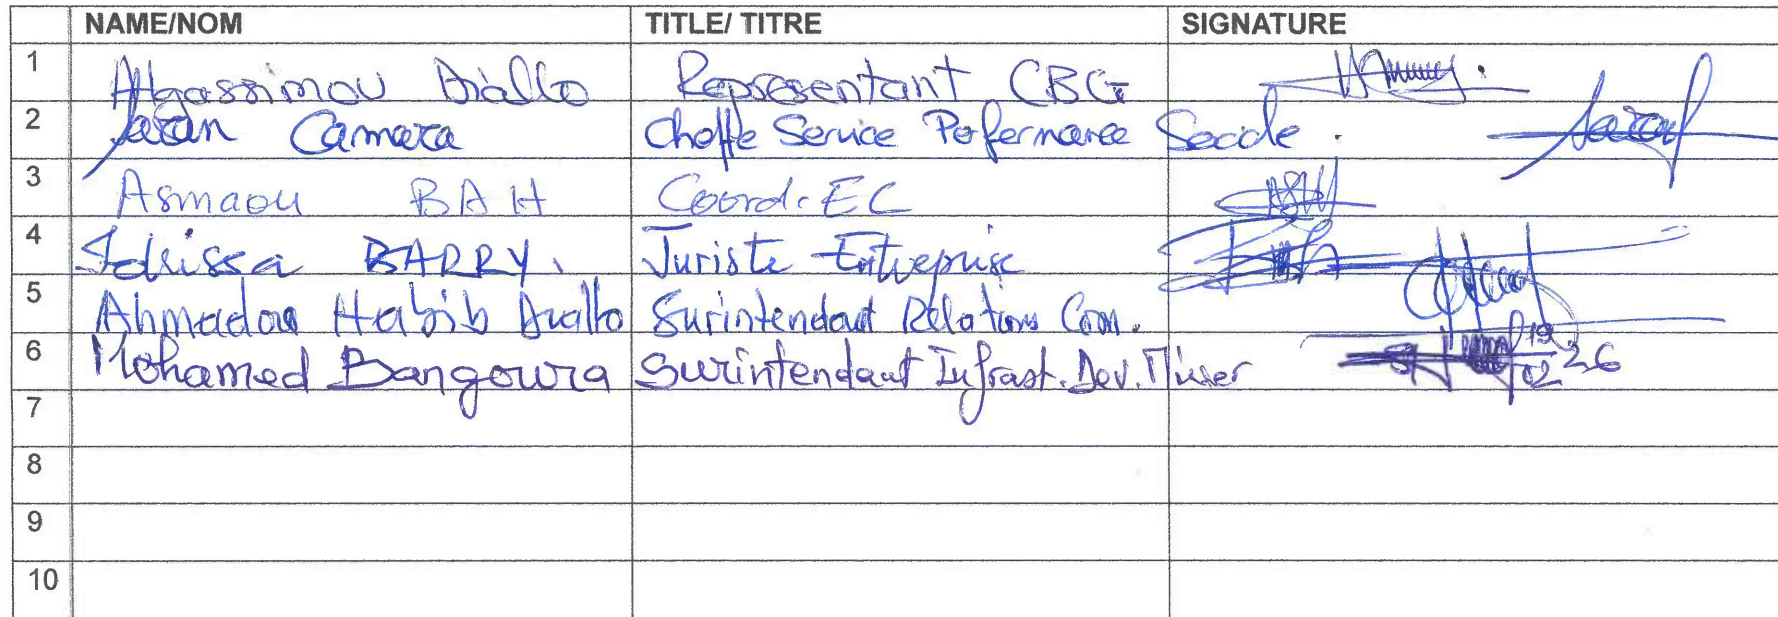 NAME/NOM TITLE/ TITRE SIGNATURE
1 Algassimou Diallo Representant CBG
2 Camara Cheffe Service Performance Sociale.
3 Asmaou BAH Coord. EC
4 Idrissa BARRY. Juriste Entreprise
5 Ahmadou Habib Diallo Surintendant Relations Com.
6 Mohamed Bangoura Surintendant Infrast. Dev. Minier 19/02 26
7
8
9
10